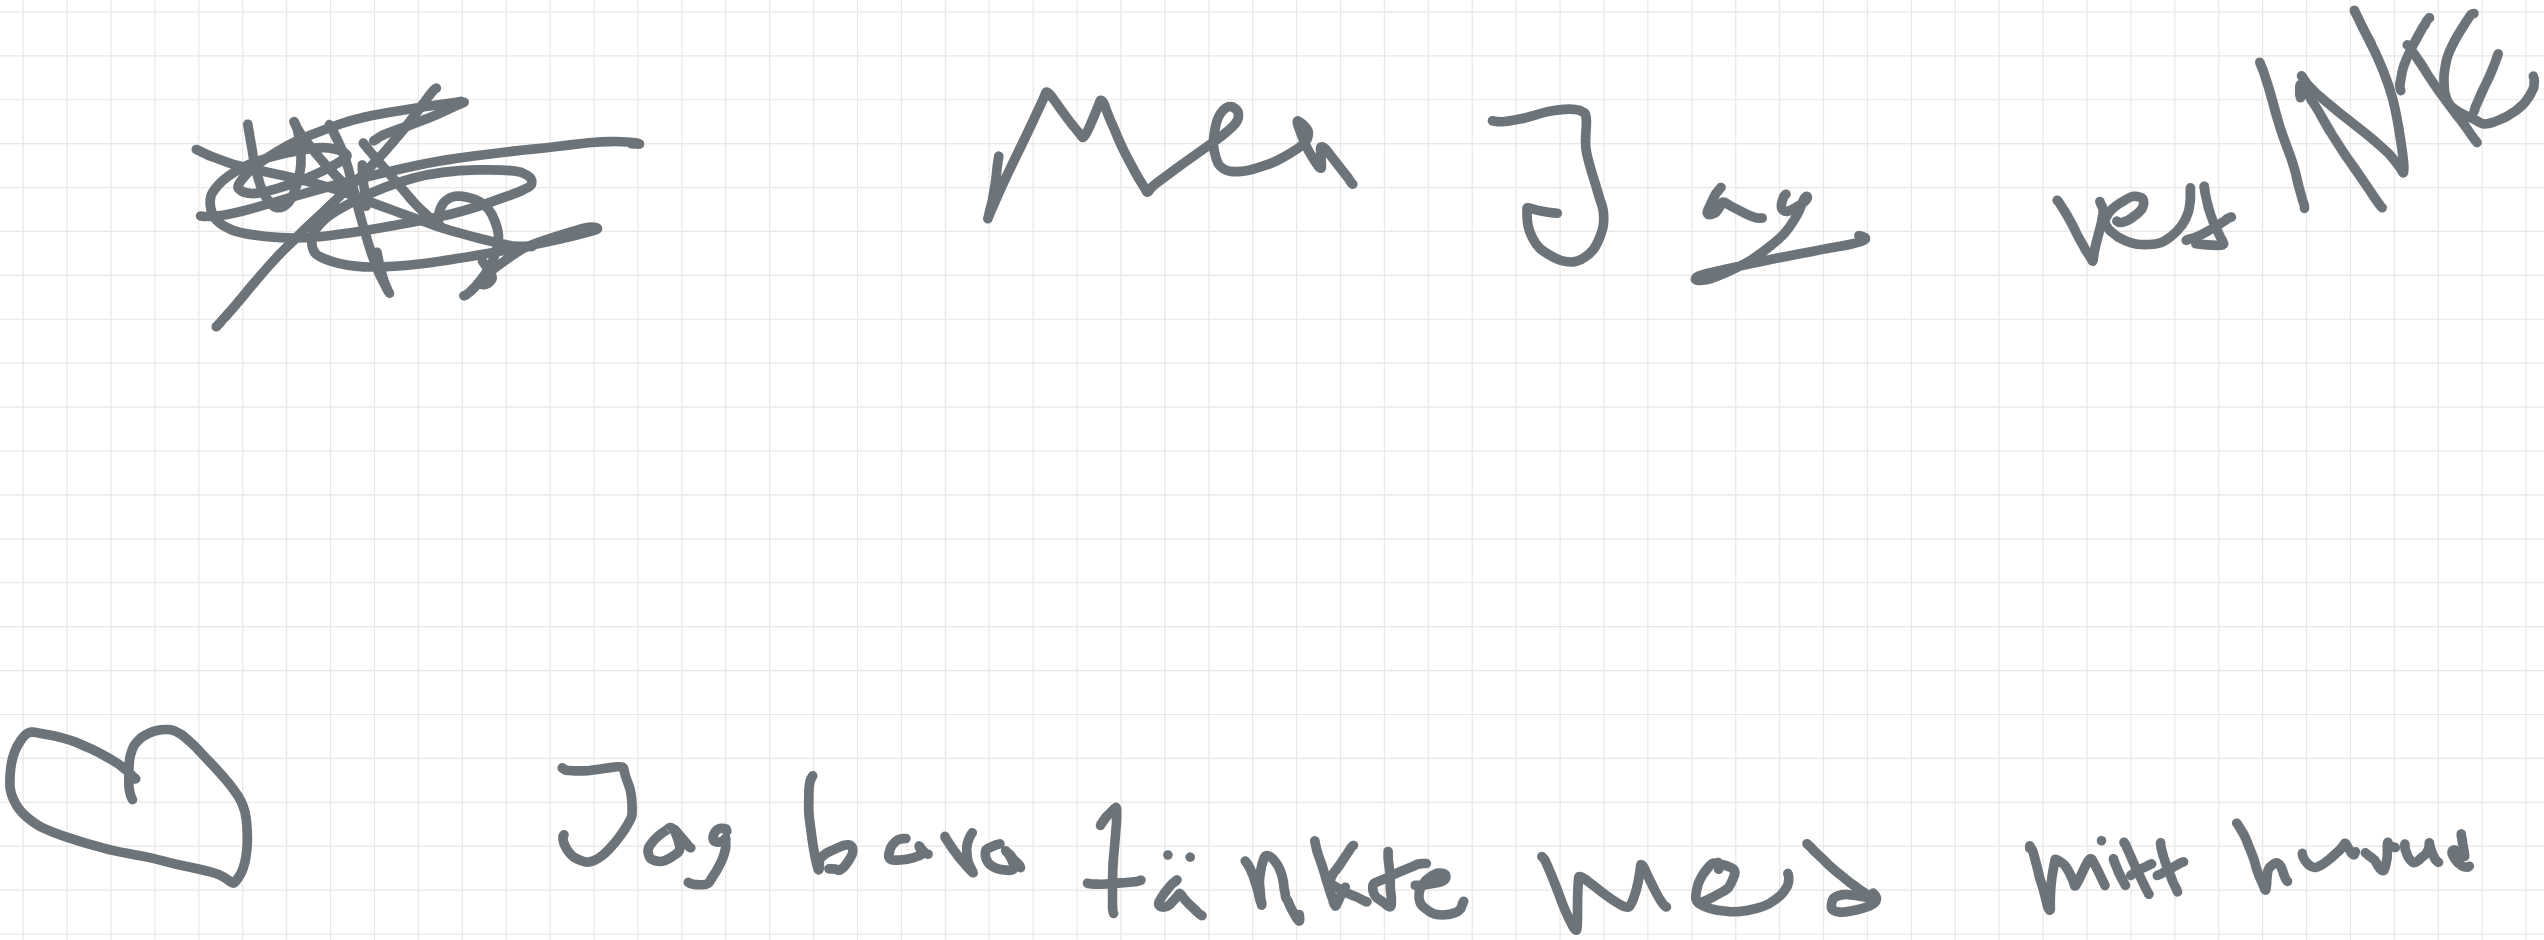 Men Jag vet INTE
Jag bara tänkte med mitt huvud